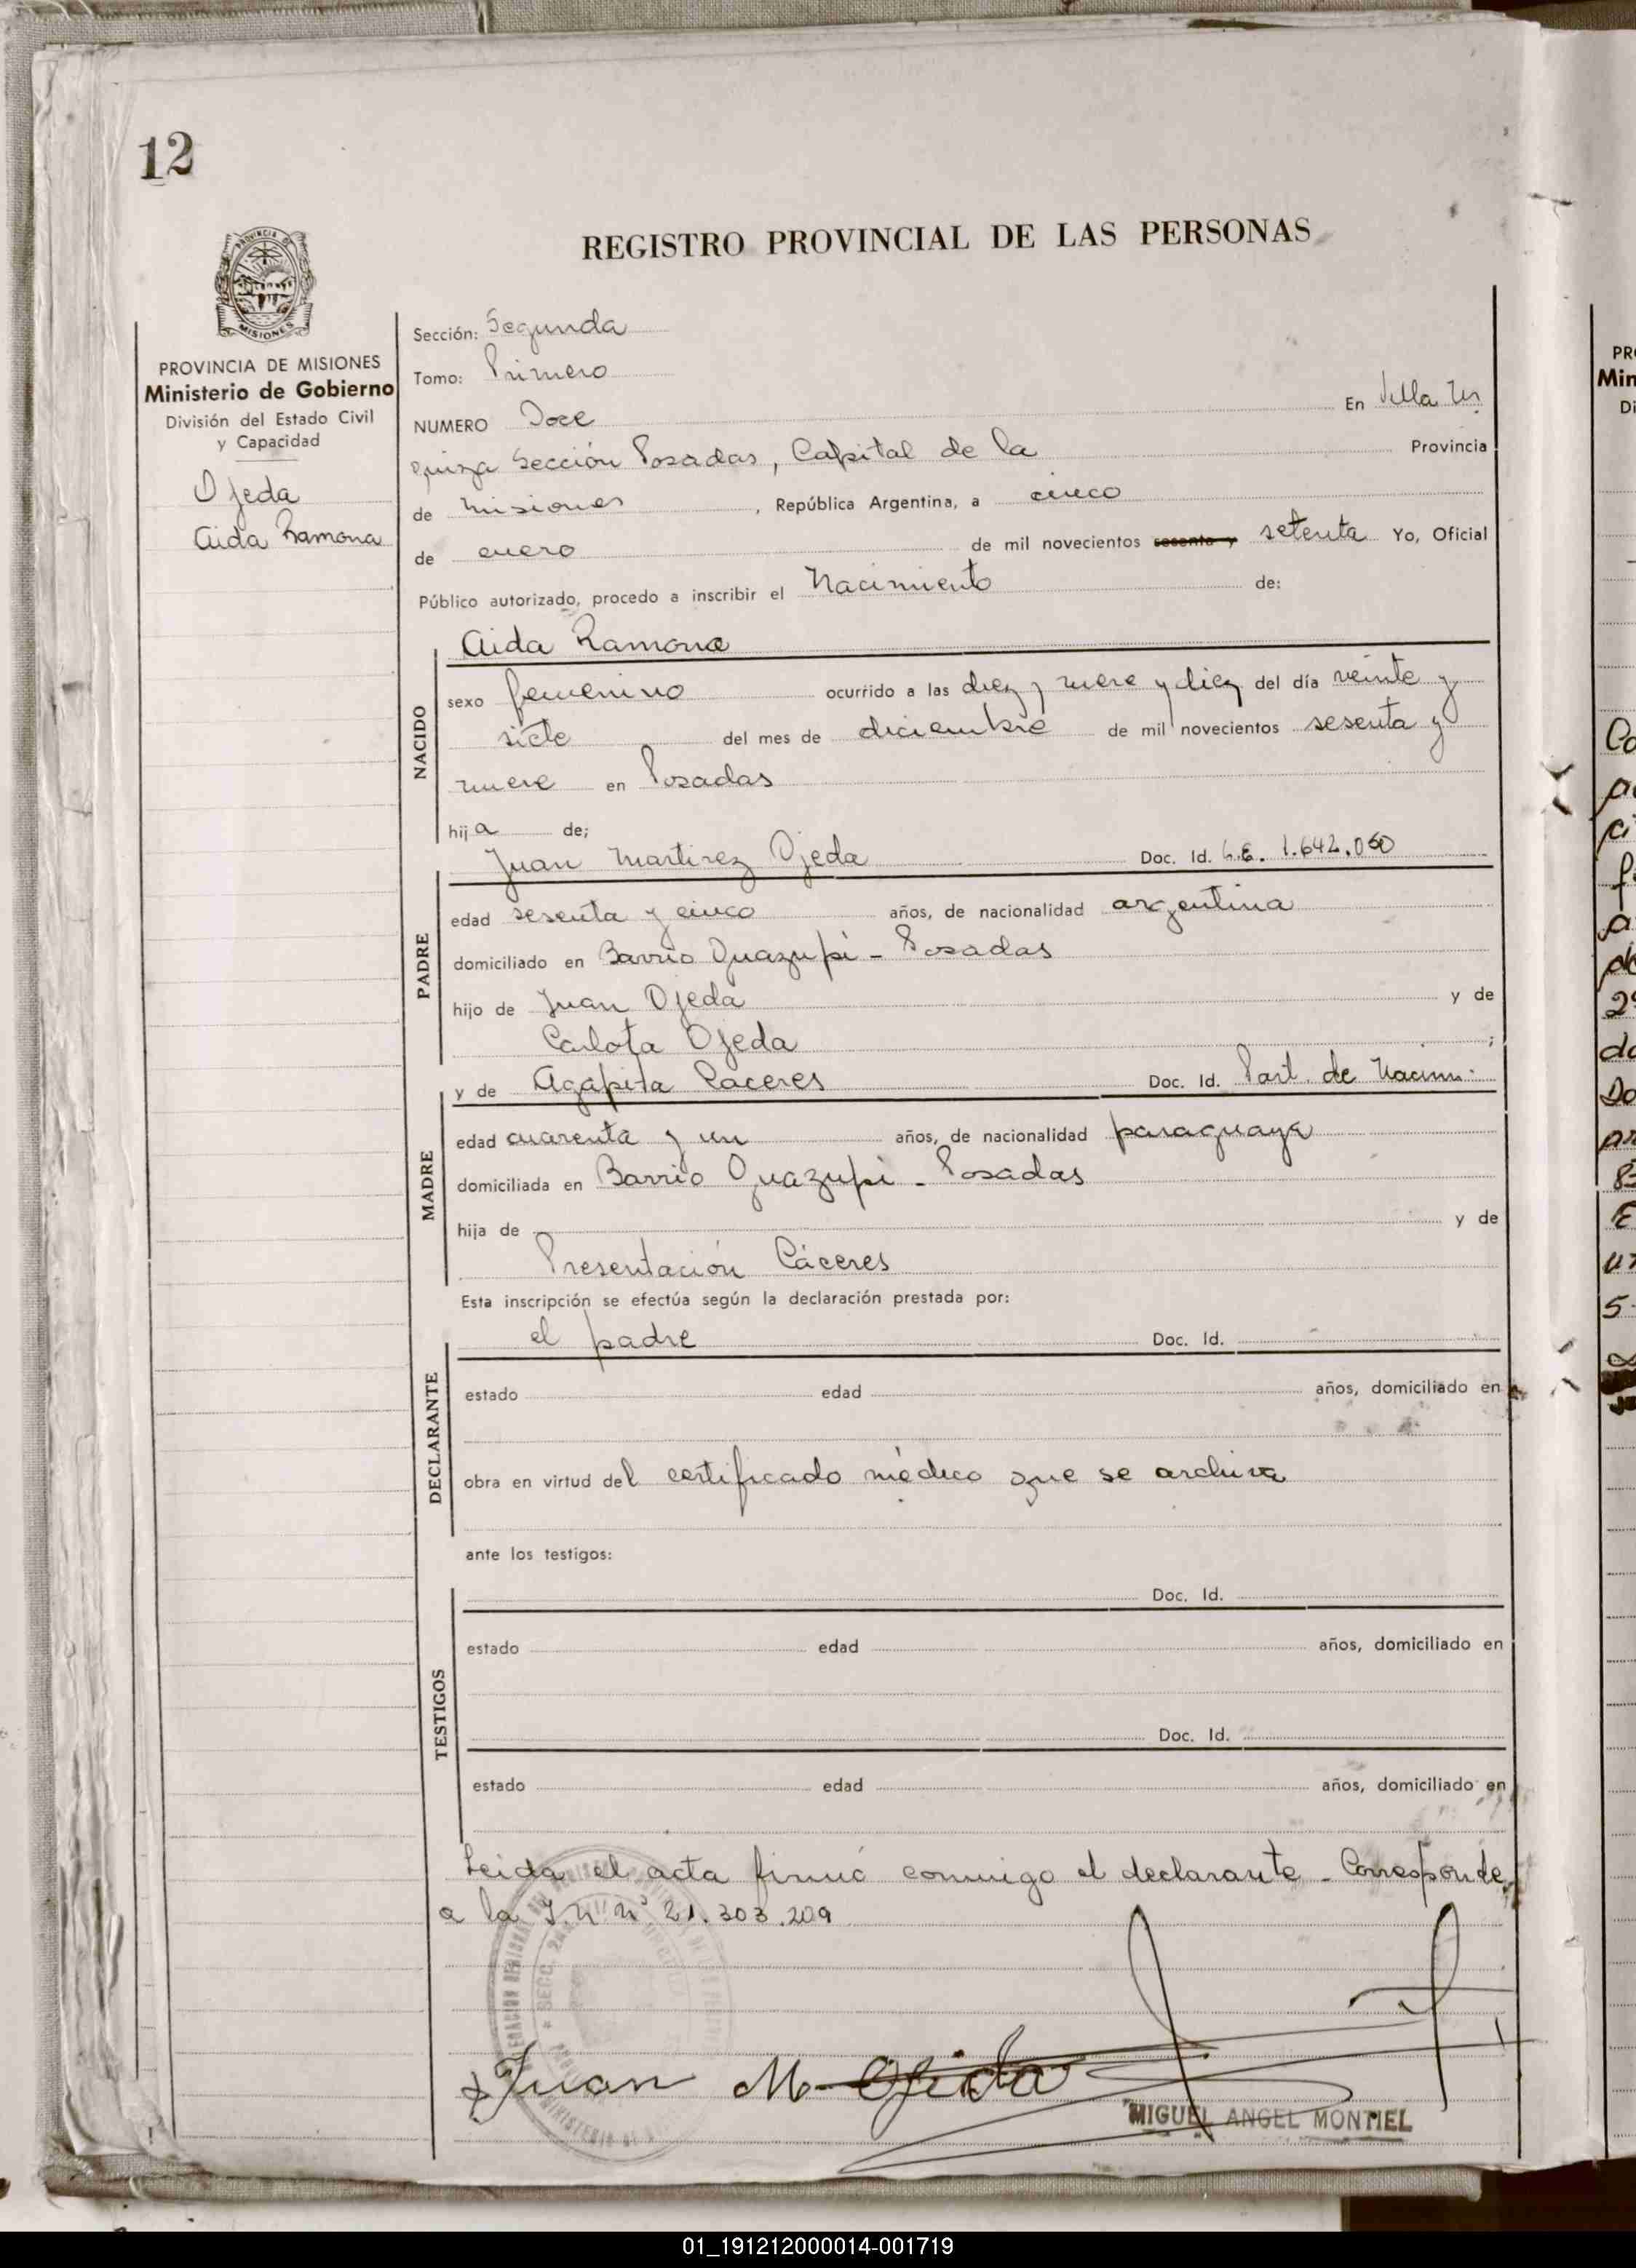 12
REGISTRO PROVINCIAL DE LAS PERSONAS
PROVINCIA DE
MISIONES
PROVINCIA DE MISIONES
Ministerio de Gobierno
División del Estado Civil
y Capacidad
Ojeda
Aida Ramona
Sección: Segunda
Tomo: Primero
NUMERO Doce En Villa Ur
quiza Sección Posadas, Capital de la Provincia
de Misiones, República Argentina, a cinco
de enero de mil novecientos sesenta y setenta Yo, Oficial
Público autorizado, procedo a inscribir el Nacimiento de:
Aida Ramona
NACIDO
sexo femenino ocurrido a las diez y nueve y diez del día veinte y
siete del mes de diciembre de mil novecientos sesenta y
nueve en Posadas
hija de;
Juan Martinez Ojeda Doc. Id. L.E. 1.642.060
PADRE
edad sesenta y cinco años, de nacionalidad argentina
domiciliado en Barrio Guazupi - Posadas
hijo de Juan Ojeda y de
Carlota Ojeda ;
y de Agapita Caceres Doc. Id. Part. de Nacim.
MADRE
edad cuarenta y un años, de nacionalidad paraguaya
domiciliada en Barrio Guazupi - Posadas
hija de y de
Presentación Cáceres
Esta inscripción se efectúa según la declaración prestada por:
el padre Doc. Id.
DECLARANTE
estado edad años, domiciliado en
obra en virtud del certificado médico que se archiva
ante los testigos:
Doc. Id.
TESTIGOS
estado edad años, domiciliado en
Doc. Id.
estado edad años, domiciliado en
Leida el acta firmó conmigo el declarante - Corresponde
a la I.N. Nº 21.303.209
Juan M. Ojeda
MIGUEL ANGEL MONTIEL
01_191212000014-001719